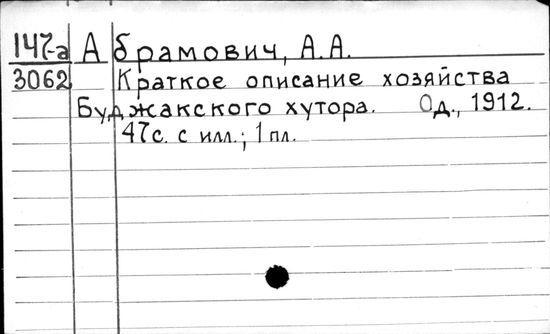 147-а Абрамович, А.А.
3062 Краткое описание хозяйства
Буджакского хутора. Од., 1912.
47с. с илл.; 1 пл.